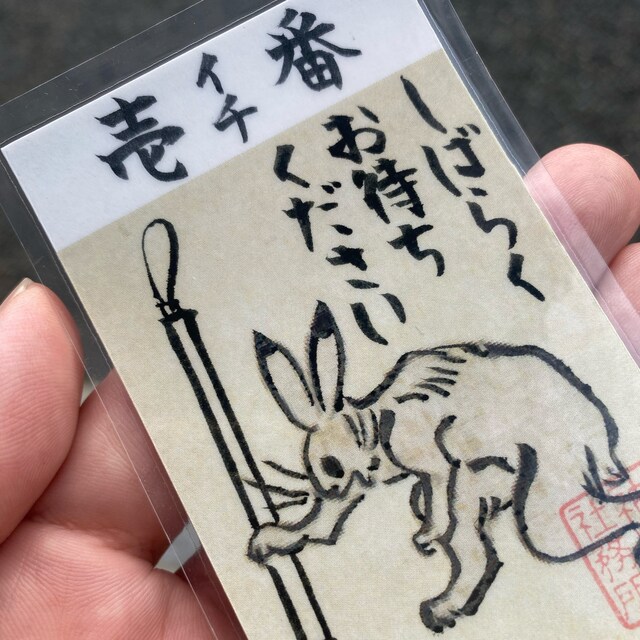 壱イチ番
しばらく
お待ち
ください